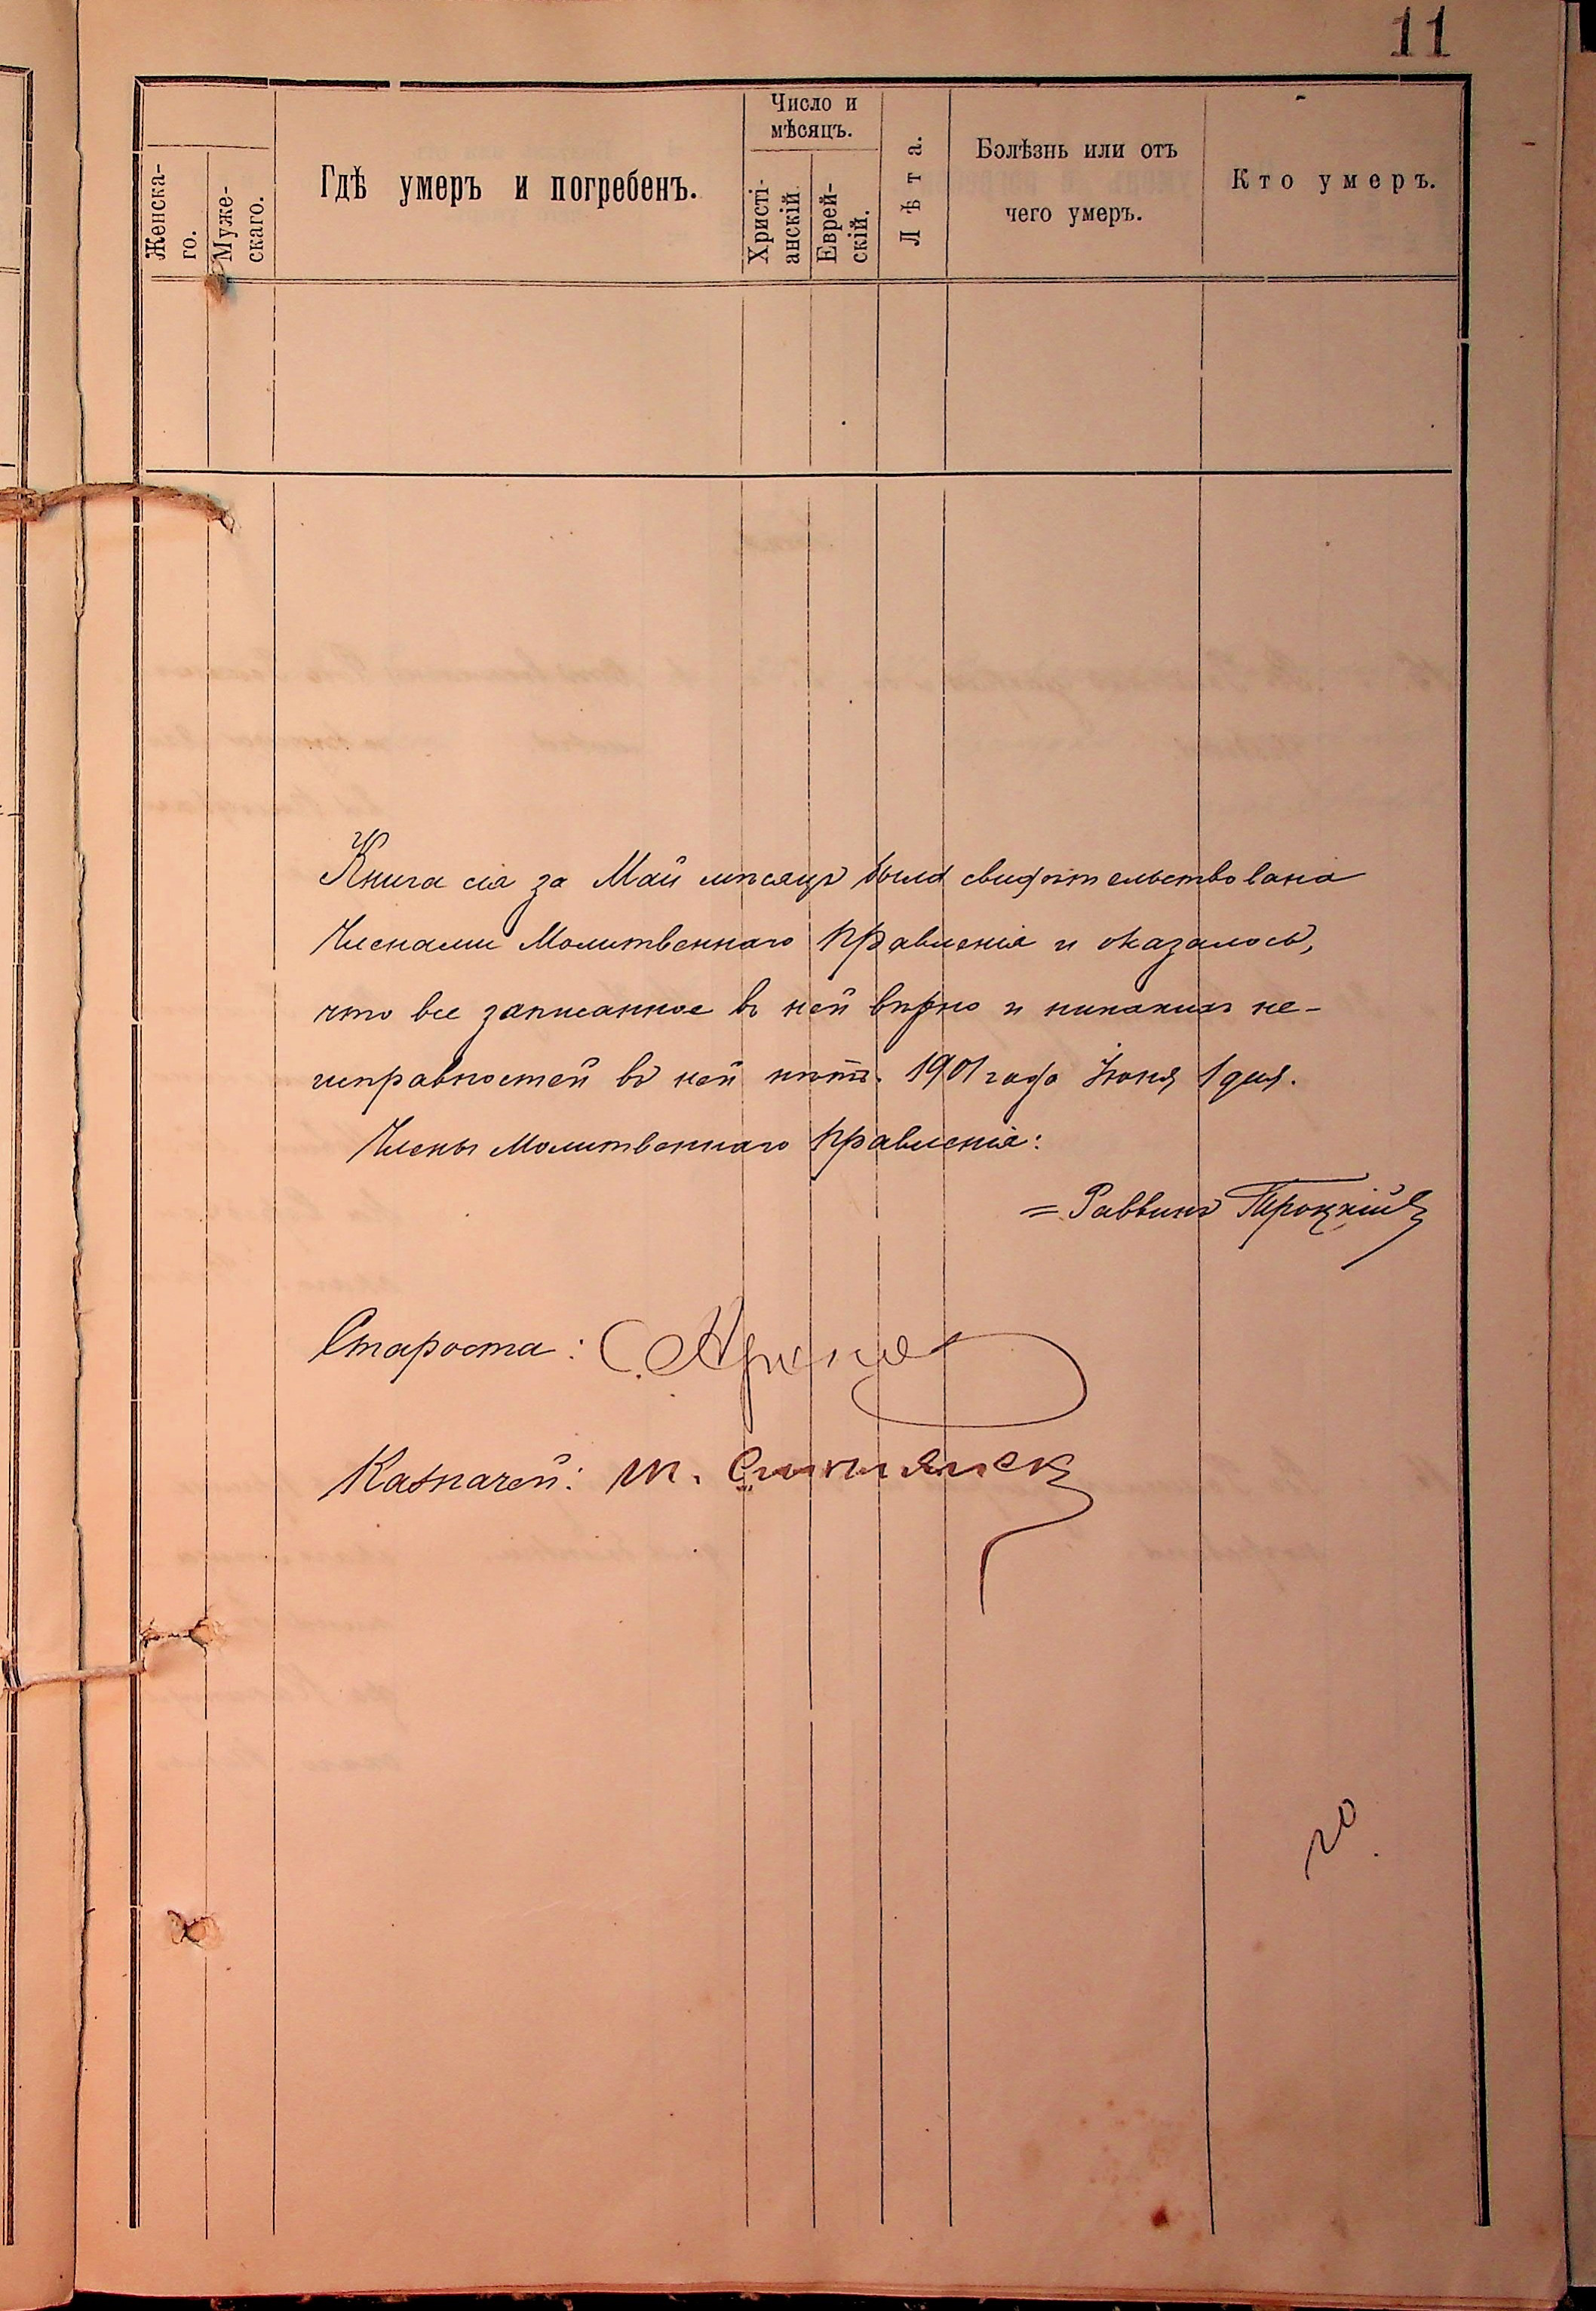 11
Женска-
го.
Муже-
скаго.
Гдѣ умеръ и погребенъ.
Число и
мѣсяцъ.
Христі-
анскій.
Еврей-
скій.
Лѣта.
Болѣзнь или отъ
чего умеръ.
Кто умеръ.
Книга сія за Май мѣсяцъ была свидѣтельствована
Членами Молитвеннаго правленія и оказалось,
что все записанное въ ней вѣрно и никакихъ не-
исправностей въ ней нѣтъ. 1901 года Іюня 1 дня.
Члены Молитвеннаго правленія:
= Раввинъ Троцкій
Староста:
Казначей: М.